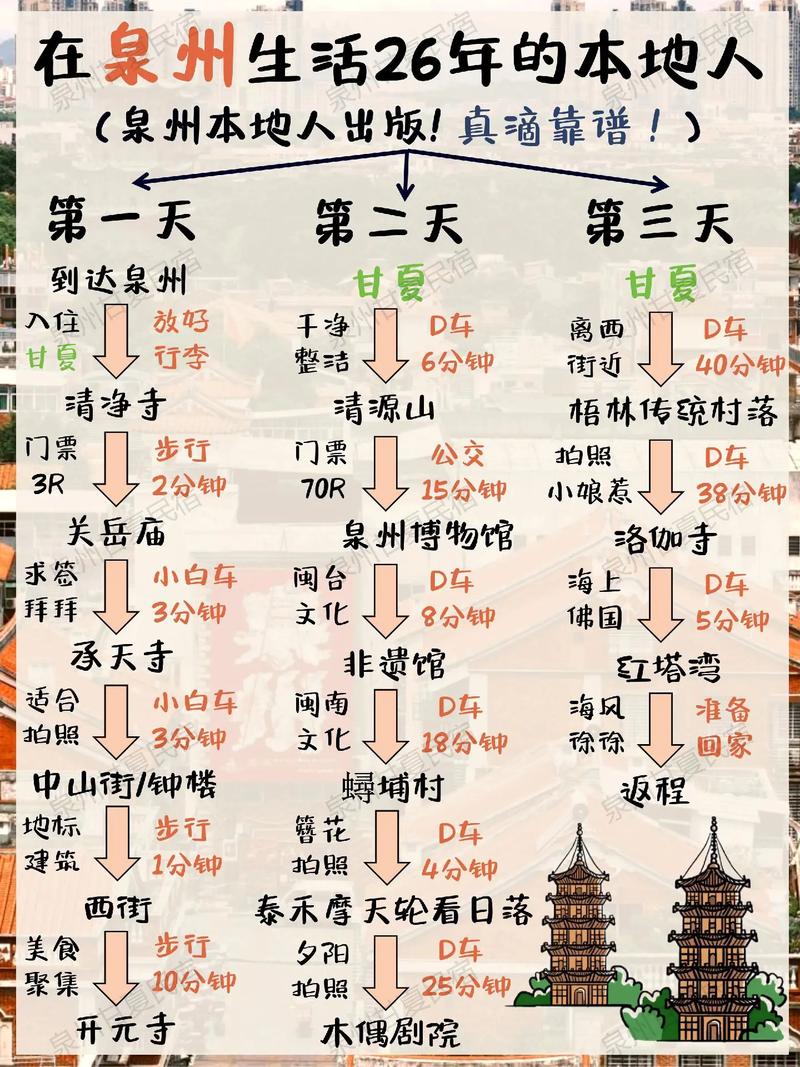 在泉州生活26年的本地人
(泉州本地人出版!真滴靠谱!)
第一天
到达泉州
入住 放好
甘夏 行李
清净寺
门票 步行
3R 2分钟
关岳庙
求签 小白车
拜拜 3分钟
承天寺
适合 小白车
拍照 3分钟
中山街/钟楼
地标 步行
建筑 1分钟
西街
美食 步行
聚集 10分钟
开元寺
第二天
甘夏
干净 D车
整洁 6分钟
清源山
门票 公交
70R 15分钟
泉州博物馆
闽台 D车
文化 8分钟
非遗馆
闽南 D车
文化 18分钟
蟳埔村
簪花 D车
拍照 4分钟
泰禾摩天轮看日落
夕阳 D车
拍照 25分钟
木偶剧院
第三天
甘夏
离西 D车
街近 40分钟
梧林传统村落
拍照 D车
小娘惹 38分钟
洛伽寺
海上 D车
佛国 5分钟
红塔湾
海风 准备
徐徐 回家
返程
泉州甘夏民宿